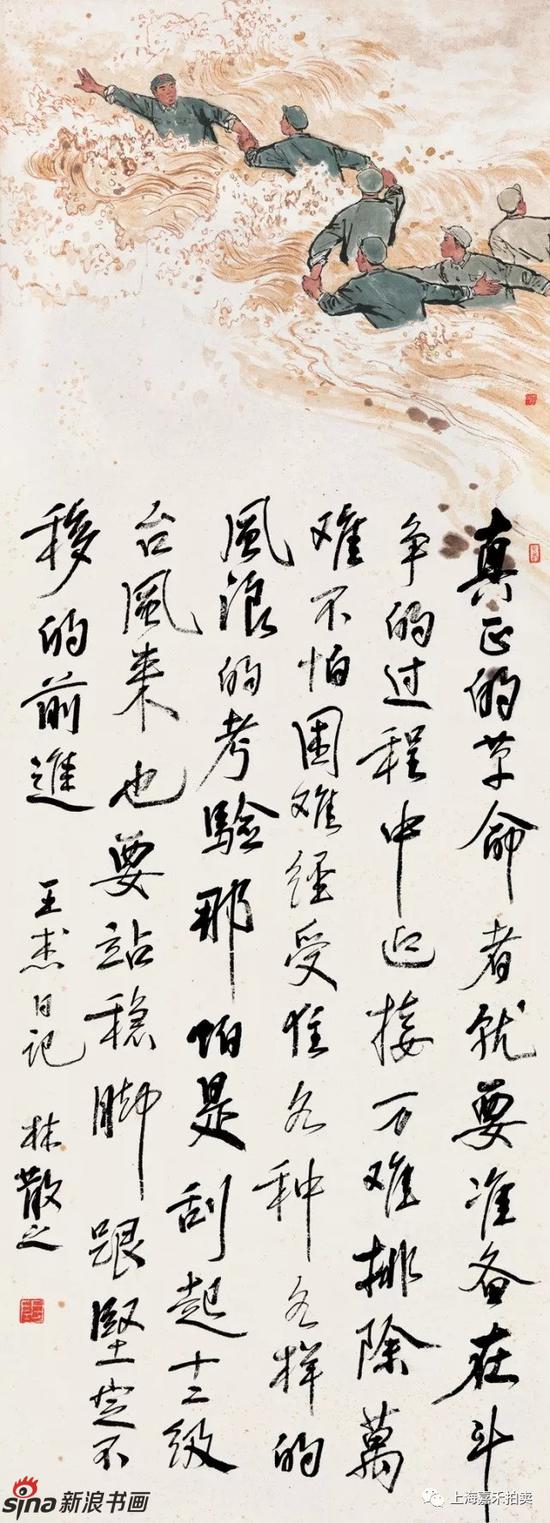 真正的革命者就要准备在斗
争的过程中迎接万难排除萬
难不怕困难经受住各种各样的
風浪的考驗那怕是刮起十二级
台風来也要站稳脚跟堅定不
移的前進
王杰日记 林散之
sina新浪书画
上海嘉禾拍卖